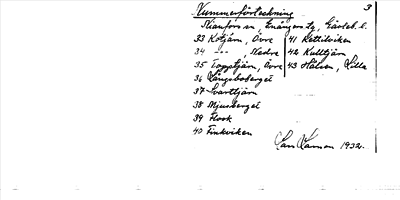 3
Nummerförteckning
Kianfors sn, Enångers tg, Gävleb. l.
33 Kotjärn, Övre
34 -"- Nedre
35 Topptjärn, Övre
36 Långboberget
37 Svarttjärn
38 Mjusberget
39 Flook
40 Finkviken
41 Kettilviken
42 Kulltjärn
43 Håven, Lilla
1932.